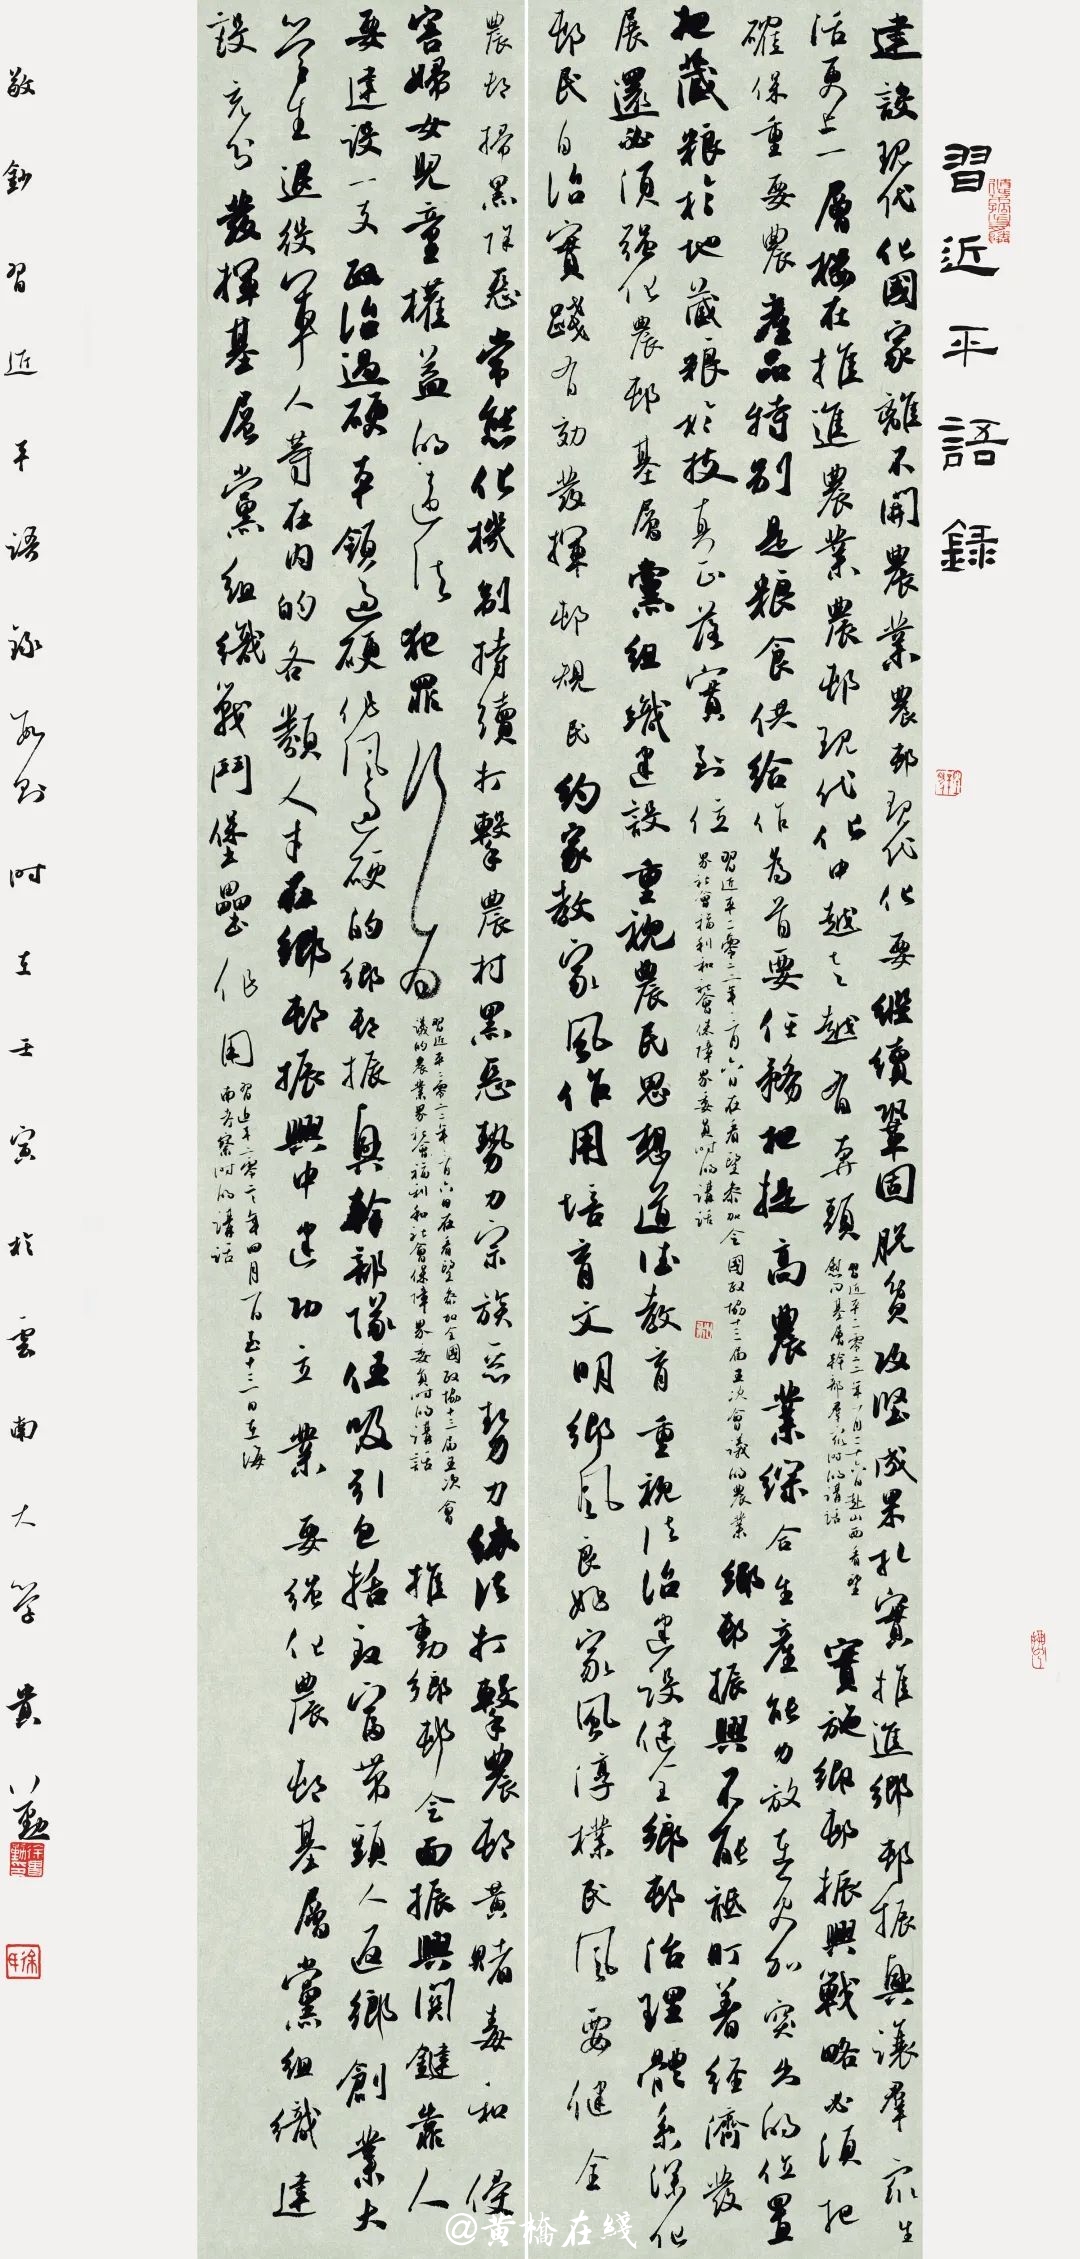 習近平語錄
建設現代化國家離不開農業農邨現代化要繼續鞏固脫貧攻堅成果扎實推進鄉邨振興讓羣衆生
活更上一層樓在推進農業農邨現代化中越走越有奔頭
習近平二零二二年一月二十六日赴山西看望
慰問基層幹部羣衆時的講話
實施鄉邨振興戰略必須把
確保重要農產品特別是糧食供給作為首要任務把提高農業綜合生產能力放在更加突出的位置
把藏糧於地藏糧於技真正落實到位
習近平二零二二年三月六日在看望參加全國政協十三屆五次會議的農業
界社會福利和社會保障界委員時的講話
鄉邨振興不能祗盯着經濟發
展還必須強化農邨基層黨組織建設重視農民思想道德教育重視法治建設健全鄉邨治理體系深化
邨民自治實踐有効發揮邨規民約家教家風作用培育文明鄉風良好家風淳樸民風要健全
農邨掃黑除惡常態化機制持續打擊農村黑惡勢力宗族惡勢力依法打擊農邨黃賭毒和侵
害婦女兒童權益的違法犯罪行為
習近平二零二二年三月六日在看望參加全國政協十三屆五次會
議的農業界社會福利和社會保障界委員時的講話
推動鄉邨全面振興關鍵靠人
要建設一支政治過硬本領過硬作風過硬的鄉邨振興幹部隊伍吸引包括致富帶頭人返鄉創業大
學生退役軍人等在內的各類人才在鄉邨振興中建功立業要強化農邨基層黨組織建
設充分發揮基層黨組織戰鬥堡壘作用
習近平二零二二年四月十日至十三日在海
南考察時的講話
敬鈔習近平語錄數則時在壬寅於雲南大學貴勤
@黃橋在綫